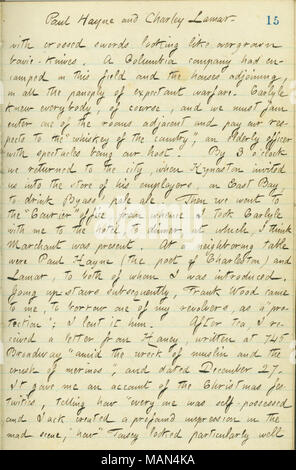 Paul Hayne and Charley Lamar.
15
with crossed swords looking like overgrown
bowie-knives. A Columbia company had en-
camped in this field and the houses adjoining,
in all the panoply of expectant warfare. Carlyle
knew everybody, of course, and we must fain
enter one of the rooms adjacent and pay our res-
pects to the "whiskey of the country", an elderly officer
with spectacles being our host. By 3 o'clock
we returned to the city, when Kynaston invited
us into the store of his employers, on East Bay
to drink Byass' pale ale. Then we went to
the "Courier" office, from whence I took Carlyle
with me to the hotel, to dinner, at which, I think
Marchant was present. At a neighboring table
were Paul Hayne (the poet of Charleston) and
Lamar, to both of whom I was introduced.
Going up stairs subsequently, Frank Wood came
to me, to borrow one of my revolvers, as a "pro-
tection"; I lent it him. After tea, I re-
ceived a letter from Haney, written at "745
Broadway "amid the wreck of muslin and the
crush of merinos", and dated December 27.
It gave me an account of the Christmas fes-
tivities, telling how "every one was self-possessed
and Jack created a profound impression in the
mad scene," how "Tousey looked particularly well
alamy
Image ID: MAN4KA
www.alamy.com